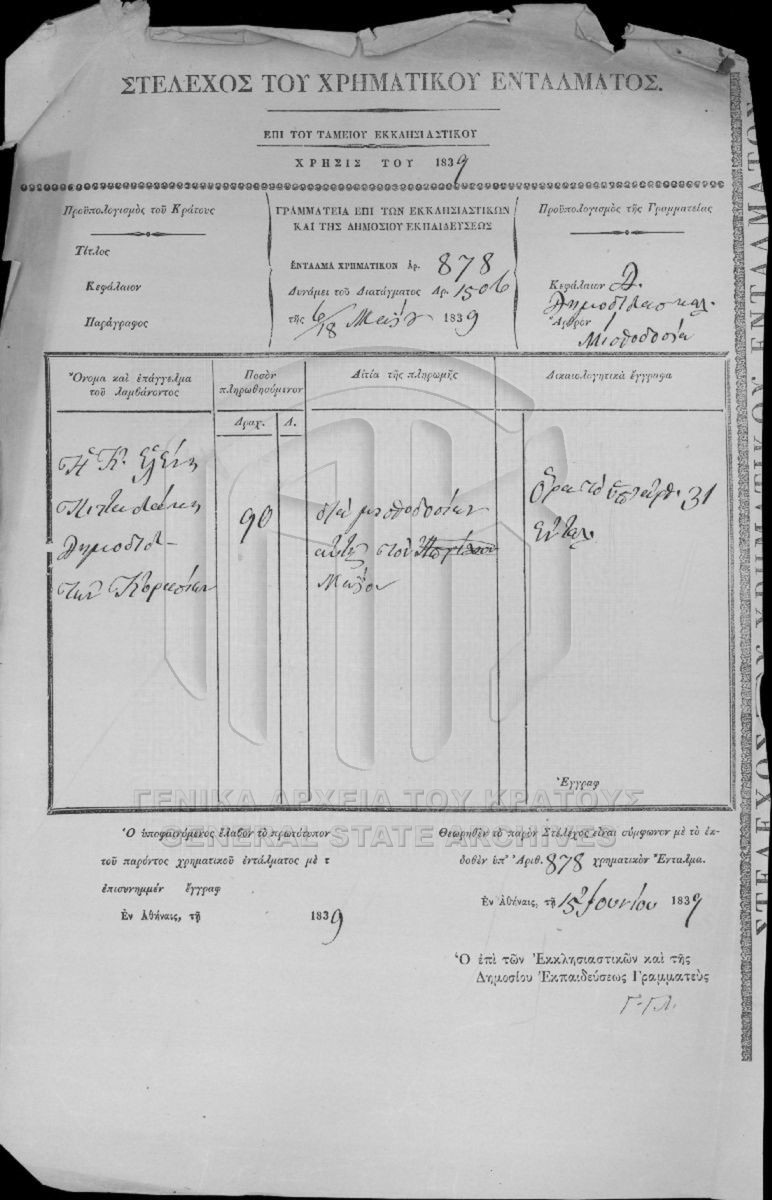 ΣΤΕΛΕΧΟΣ ΤΟΥ ΧΡΗΜΑΤΙΚΟΥ ΕΝΤΑΛΜΑΤΟΣ.
ΕΠΙ ΤΟΥ ΤΑΜΕΙΟΥ ΕΚΚΛΗΣΙΑΣΤΙΚΟΥ
ΧΡΗΣΙΣ ΤΟΥ 1839
Προϋπολογισμὸς τοῦ Κράτους
Τίτλος
Κεφάλαιον
Παράγραφος
ΓΡΑΜΜΑΤΕΙΑ ΕΠΙ ΤΩΝ ΕΚΚΛΗΣΙΑΣΤΙΚΩΝ
ΚΑΙ ΤΗΣ ΔΗΜΟΣΙΟΥ ΕΚΠΑΙΔΕΥΣΕΩΣ
ΕΝΤΑΛΜΑ ΧΡΗΜΑΤΙΚΟΝ Ἀρ. 878
Δυνάμει τοῦ Διατάγματος Ἀρ. 1506
τῆς 6/18 Μαΐου 1839
Προϋπολογισμὸς τῆς Γραμματείας
Κεφάλαιον Δ.
Δημοδιδασκαλ.
Ἄρθρον
Μισθοδοσία
Ὄνομα καὶ ἐπάγγελμα
τοῦ λαμβάνοντος
Ποσὸν
πληρωθησόμενον
Δραχ. Λ.
Αἰτία τῆς πληρωμῆς
Δικαιολογητικὰ ἔγγραφα
Ἡ Κ. Ἑλένη
Δημοδιδ-
τῶν Κορασίων
90
διὰ μισθοδοσίαν
αὐτῆς τοῦ
Μαΐου
Ὅρα τὸ ὑπ' ἀριθ. 31
Ἐνταλ.
Ἔγγραφ
ΓΕΝΙΚΑ ΑΡΧΕΙΑ ΤΟΥ ΚΡΑΤΟΥΣ
GENERAL STATE ARCHIVES
Ὁ ὑποφαινόμενος ἔλαβον τὸ πρωτότυπον
τοῦ παρόντος χρηματικοῦ ἐντάλματος μὲ τ
ἐπισυνημμέν ἔγγραφ
Ἐν Ἀθήναις, τῇ 1839
Θεωρηθὲν τὸ παρὸν Στέλεχος εἶναι σύμφωνον μὲ τὸ ἐκ-
δοθὲν ὑπ' Ἀριθ. 878 χρηματικὸν Ἔνταλμα.
Ἐν Ἀθήναις, τῇ 15 Ἰουνίου 1839
Ὁ ἐπὶ τῶν Ἐκκλησιαστικῶν καὶ τῆς
Δημοσίου Ἐκπαιδεύσεως Γραμματεὺς
ΣΤΕΛΕΧΟΣ ΤΟΥ ΧΡΗΜΑΤΙΚΟΥ ΕΝΤΑΛΜΑΤΟΣ